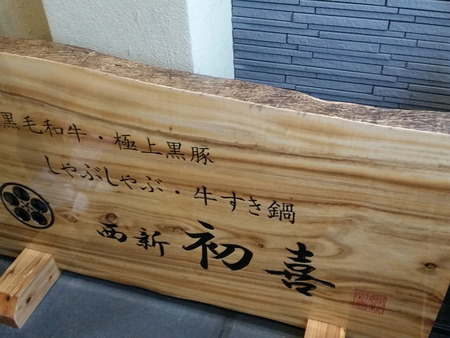 黒毛和牛・極上黒豚
しゃぶしゃぶ・牛すき鍋
西新 初喜